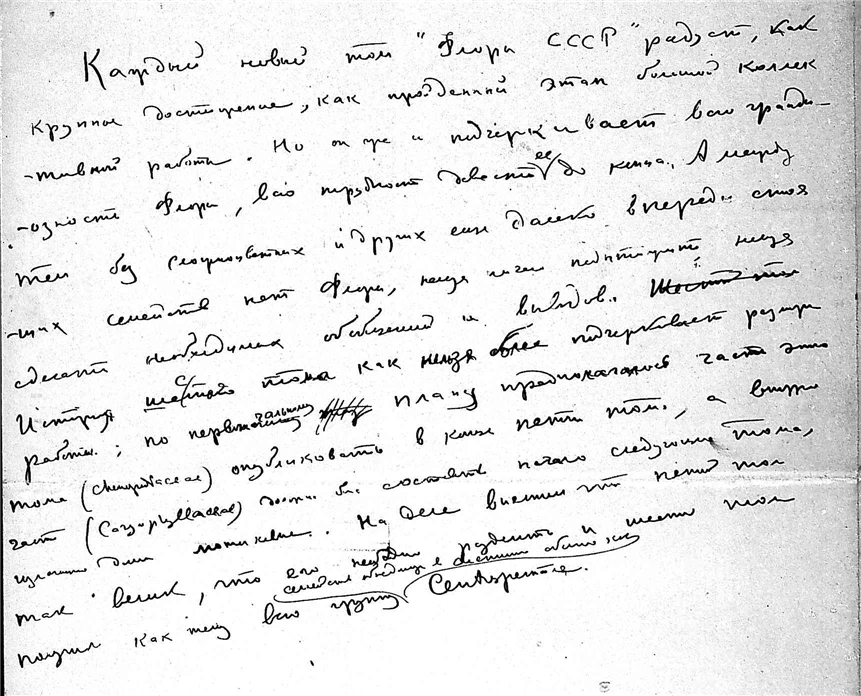 Каждый новый том "Флора СССР" радует, как
крупное достижение, как пройденный этап большой коллек
-тивной работы. Но он же и подчеркивает всю гранди-
-озность Флоры, всю трудность довести ее до конца. А между
тем без сложноцветных и других еще далеко впереди стоя
-щих семейств нет Флоры, нельзя
сделать необходимых обобщений и выводов. Шестой том
История шестого тома как нельзя более подчеркивает размеры
работы; по первоначальному плану предполагалось часть этого
тома (Chenopodiaceae) опубликовать в конце пятого тома, а вторую
часть (Caryophyllaceae) должны были составить начало следующего тома,
На деле пятый том
так велик, что его необходимо разделить и шестой том
получил как тему всю группу Centrospermae.